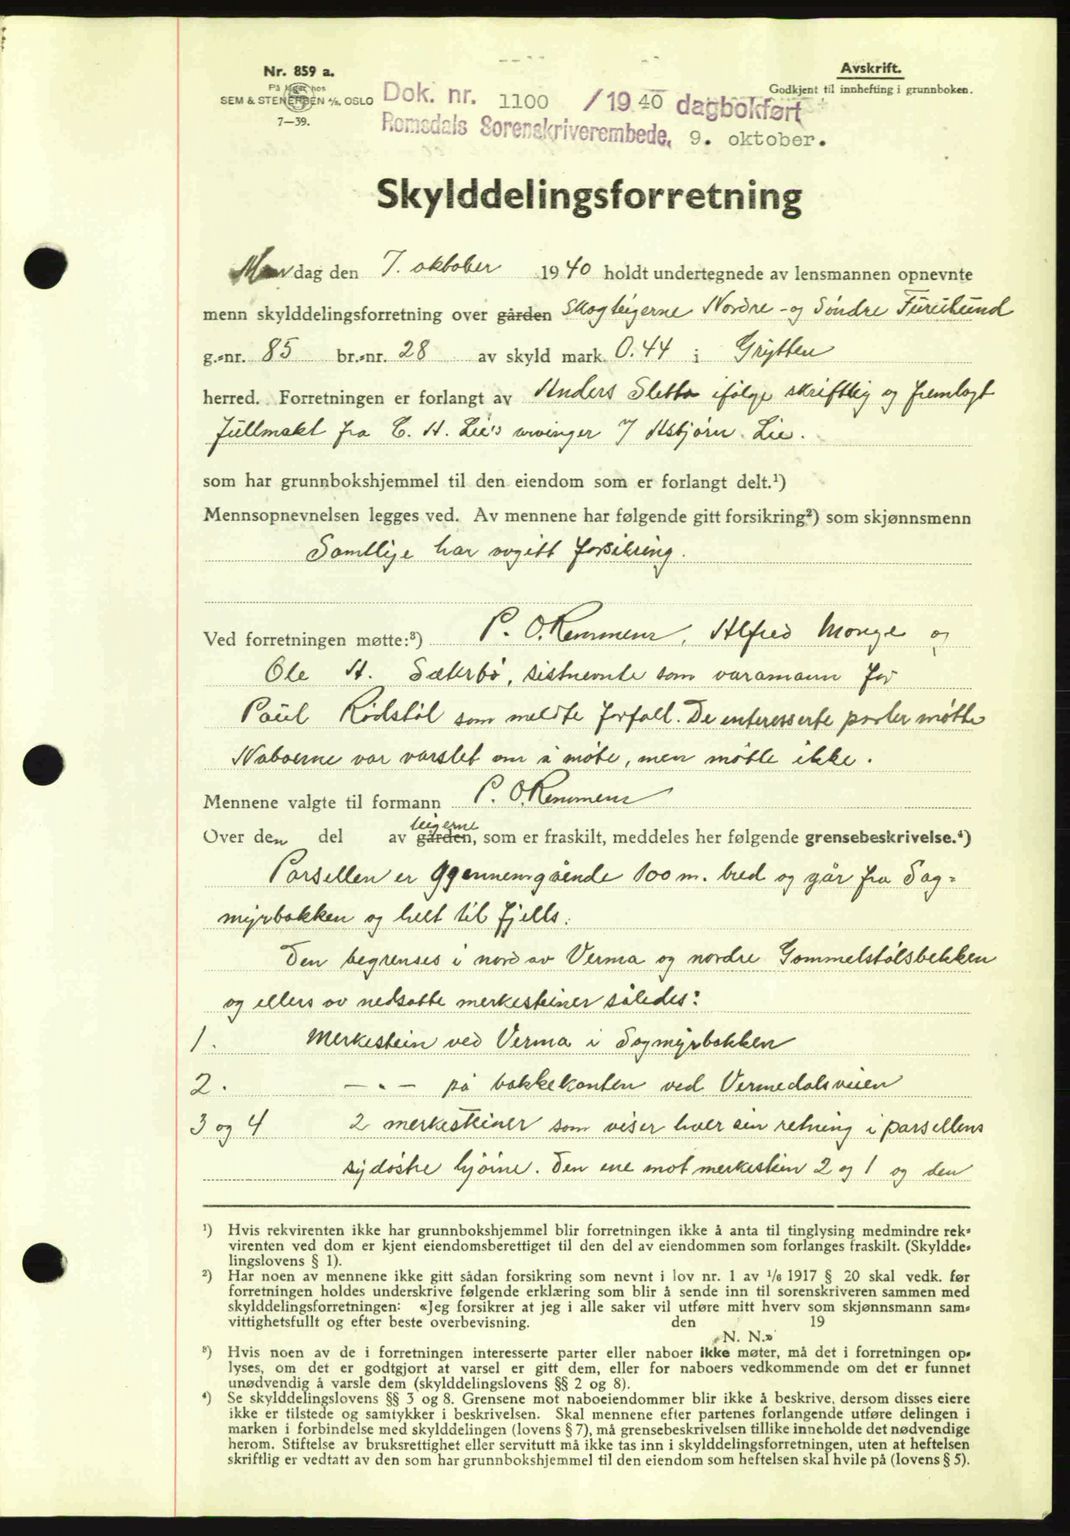 Nr. 859 a.
På lager hos
SEM & STENERSEN A/S, OSLO
7—39.
Avskrift.
Godkjent til innhefting i grunnboken.
Dok. nr. 1100 / 19 40 dagbokført
Romsdals Sorenskriverembede, 9. oktober.
Skylddelingsforretning
Mandag den 7. oktober 1940 holdt undertegnede av lensmannen opnevnte
menn skylddelingsforretning over gården Skogteigerne Nordre - og Söndre Furulund
g.-nr. 85 br.-nr. 28 av skyld mark 0.44 i Grytten
herred. Forretningen er forlangt av Anders Sletta ifölge skriftlig og fremlagt
füllmakt fra C. A. Lie's arvinger v/ Asbjörn Lie.
som har grunnbokshjemmel til den eiendom som er forlangt delt.¹)
Mennsopnevnelsen legges ved. Av mennene har følgende gitt forsikring²) som skjønnsmenn
Samtlige har avgitt forsikring.
Ved forretningen møtte:³) P. O. Remmem, Alfred Monge og
Ole A. Sæterbö, sistnevnte som varamann for
Paul Rödstöl som meldte forfall. De interesserte parter møtte
Naboerne var varslet om å möte, men mötte ikke.
Mennene valgte til formann P. O. Remmem
teigerne
Over den del av gården, som er fraskilt, meddeles her følgende grensebeskrivelse.⁴)
Parsellen er ggennemgående 100 m. bred og går fra Sag-
myrbakken og helt til fjells.
Den begrenses i nord av Verma og nordre Gammelstölsbekken
og ellers av nedsatte merkesteiner således:
1. Merkestein ved Verma i Sagmyrbakken
2. — " — på bakkekanten ved Vermedalsveien
3 og 4 2 merkesteiner som viser hver sin retning i parsellens
sydöstre hjörne. Den ene mot merkestein 2 og 1 og den
¹) Hvis rekvirenten ikke har grunnbokshjemmel blir forretningen ikke å anta til tinglysing medmindre rek-
virenten ved dom er kjent eiendomsberettiget til den del av eiendommen som forlanges fraskilt. (Skyldde-
lingslovens § 1).
²) Har noen av mennene ikke gitt sådan forsikring som nevnt i lov nr. 1 av 1/6 1917 § 20 skal vedk. før
forretningen holdes underskrive følgende erklæring som blir å sende inn til sorenskriveren sammen med
skylddelingsforretningen: «Jeg forsikrer at jeg i alle saker vil utføre mitt hverv som skjønnsmann sam-
vittighetsfullt og efter beste overbevisning. den 19
N. N.»
³) Hvis noen av de i forretningen interesserte parter eller naboer ikke møter, må det i forretningen op-
lyses, om det er godtgjort at varsel er gitt dem, eller for naboers vedkommende om det er funnet
unødvendig å varsle dem (skylddelingslovens §§ 2 og 8).
⁴) Se skylddelingslovens §§ 3 og 8. Grensene mot naboeiendommer blir ikke å beskrive, dersom disses eiere
ikke er tilstede og samtykker i beskrivelsen. Skal mennene efter partenes forlangende utføre delingen i
marken i forbindelse med skylddelingen (lovens § 7), må grensebeskrivelsen tillike inneholde det nødvendige
herom. Stiftelse av bruksrettighet eller servitutt må ikke tas inn i skylddelingsforretningen, uten at heftelsen
skriftlig er vedtatt av den som har grunnbokshjemmel til den eiendom som heftelsen skal hvile på (lovens § 5).